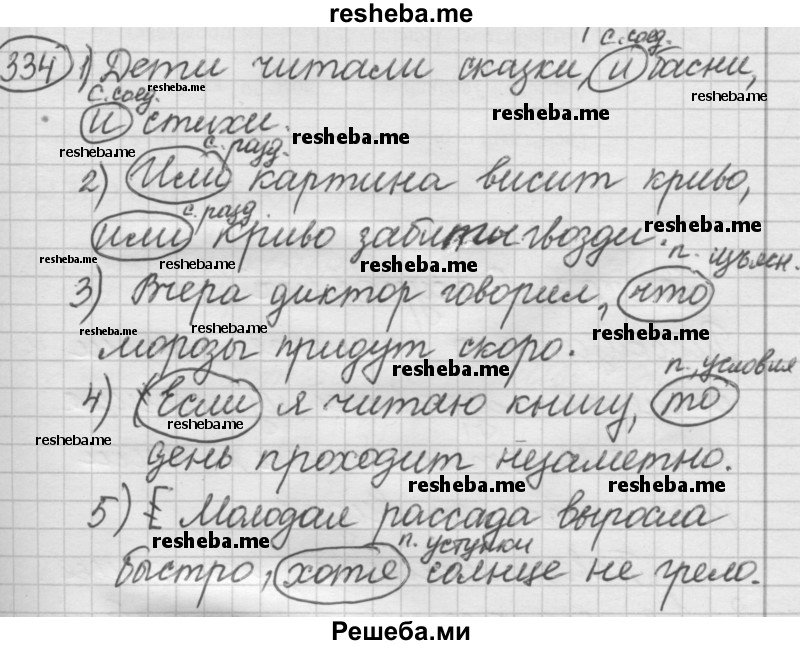 resheba.me
с. соед.
334 1) Дети читали сказки, и басни,
с. соед. resheba.me resheba.me
и стихи. resheba.me resheba.me
resheba.me с. разд.
2) Или картина висит криво,
с. разд.
или криво забиты гвозди. resheba.me
resheba.me resheba.me resheba.me п. изъясн.
3) Вчера диктор говорил, что
resheba.me resheba.me resheba.me
морозы придут скоро.
resheba.me п. условия
4) Если я читаю книгу, то
resheba.me resheba.me
день проходит незаметно.
resheba.me resheba.me
5) Молодая рассада выросла
resheba.me п. уступки
быстро, хотя солнце не грело.
Решеба.ми